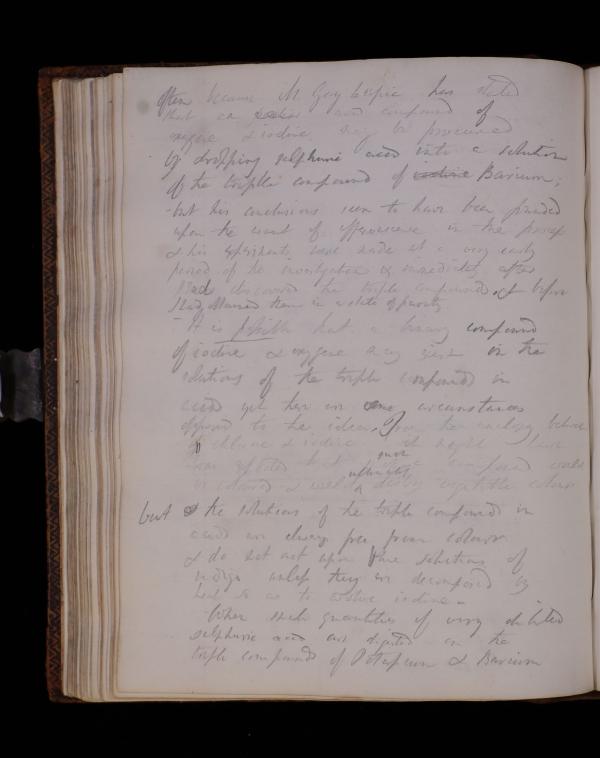 often because M Gay Lussac has stated
that an acid compound of
oxygene & iodine may be procured
by dropping sulphuric acid into a solution
of the triple compound of iodine Barium;
-but his conclusions seem to have been founded
upon the want of effervescence in the process
& his experiments were made at a very early
period of the investigation & immediately after
I had discovered the triple compounds & before
I had obtained them in a state of purity
- It is possible that a binary compound
of iodine & oxygene may exist in the
solutions of the triple compounds in
acids yet there are some circumstances
opposed to the idea. From the analogy between
chlorine & iodine it might have
been expected that such a compound would
be coloured & would destroy vegetable colours
but the solutions of the triple compounds in
acids are always free from colour
& do not act upon the solutions of
indigo unless they are decomposed by
heat so as to evolve iodine -
When such quantities of very diluted
sulphuric acid are digested on the
triple compounds of Potassium & Barium